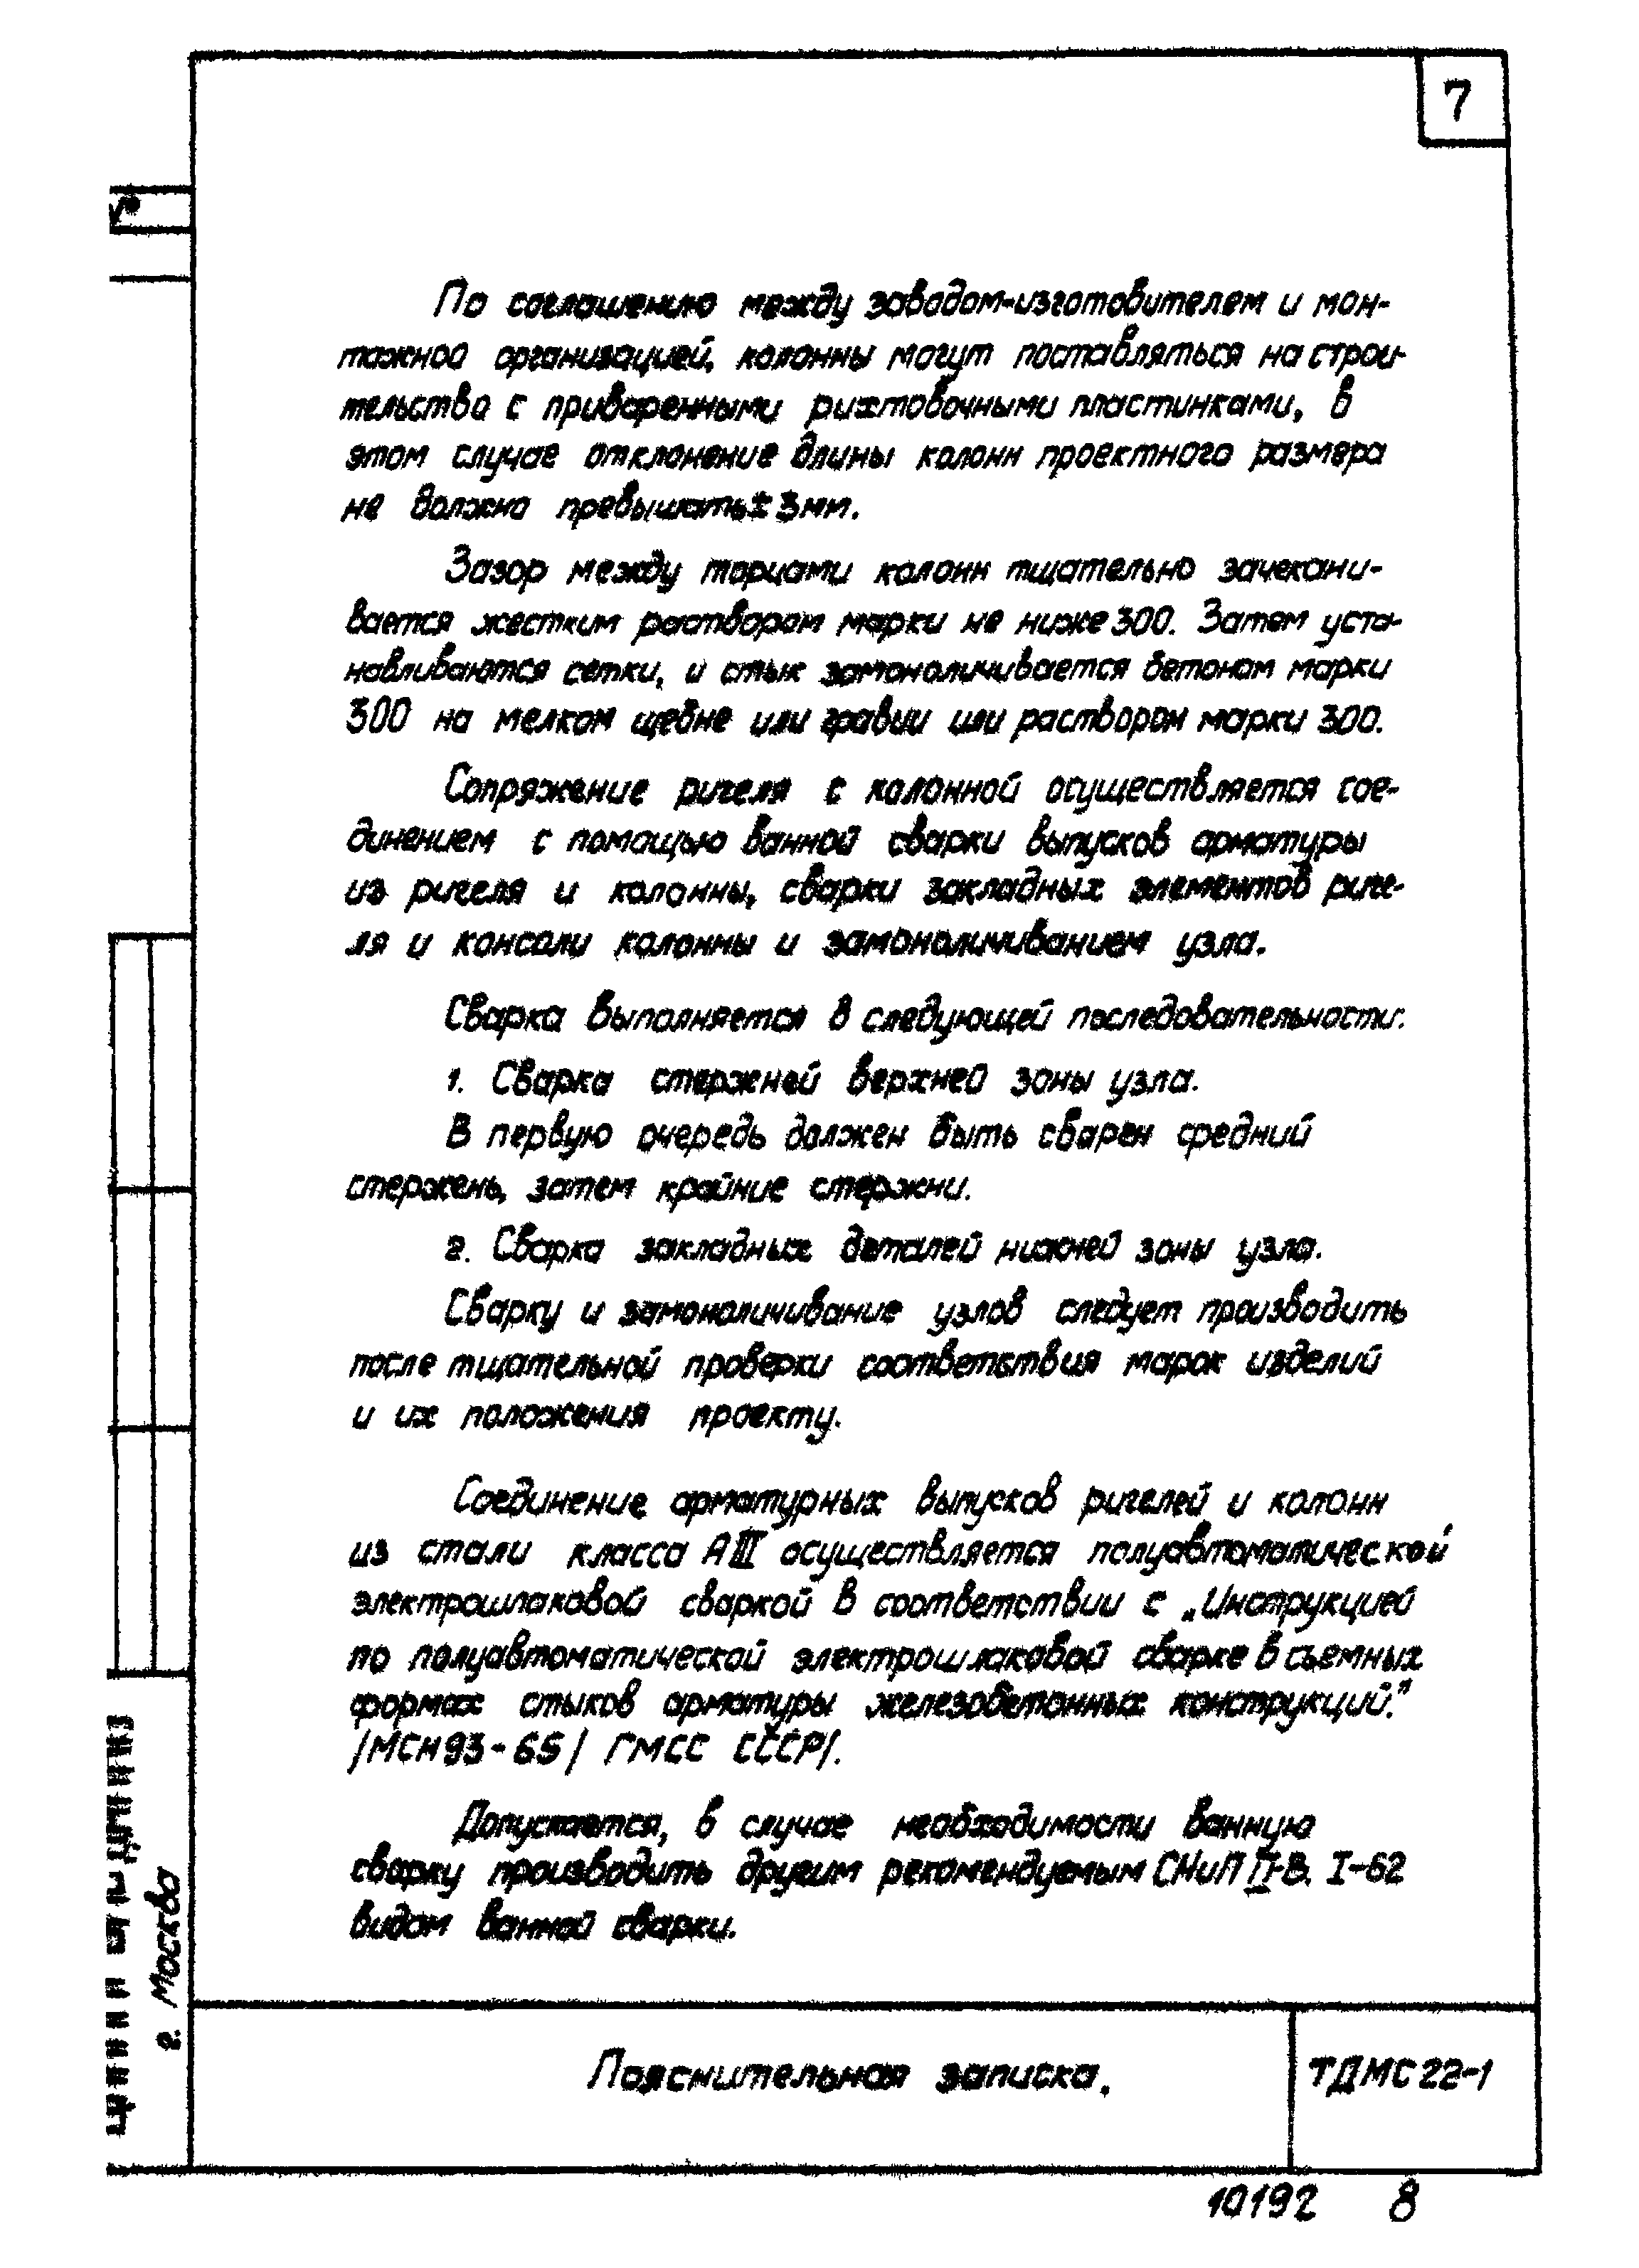 7
По соглашению между заводом-изготовителем и мон-
тажной организацией, колонны могут поставляться на строи-
тельство с приваренными рихтовочными пластинками, в
этом случае отклонение длины колонн проектного размера
не должно превышать ± 3мм.
Зазор между торцами колонн тщательно зачекани-
вается жестким раствором марки не ниже 300. Затем уста-
навливаются сетки, и стык замоноличивается бетоном марки
300 на мелком щебне или гравии или раствором марки 300.
Сопряжение ригеля с колонной осуществляется сое-
динением с помощью ванной сварки выпусков арматуры
из ригеля и колонны, сварки закладных элементов риге-
ля и консоли колонны и замоноличиванием узла.
Сварка выполняется в следующей последовательности:
1. Сварка стержней верхней зоны узла.
В первую очередь должен быть сварен средний
стержень, затем крайние стержни.
2. Сварка закладных деталей нижней зоны узла.
Сварку и замоноличивание узлов следует производить
после тщательной проверки соответствия марок изделий
и их положения проекту.
Соединение арматурных выпусков ригелей и колонн
из стали класса АIII осуществляется полуавтоматической
электрошлаковой сваркой в соответствии с „Инструкцией
по полуавтоматической электрошлаковой сварке в съемных
формах стыков арматуры железобетонных конструкций."
/МСН93-65/ ГМСС СССР/.
Допускается, в случае необходимости ванную
сварку производить другим рекомендуемым СНиП II-В. I-62
видом ванной сварки.
г. Москва
Пояснительная записка.
ТДМС 22-1
10192 8